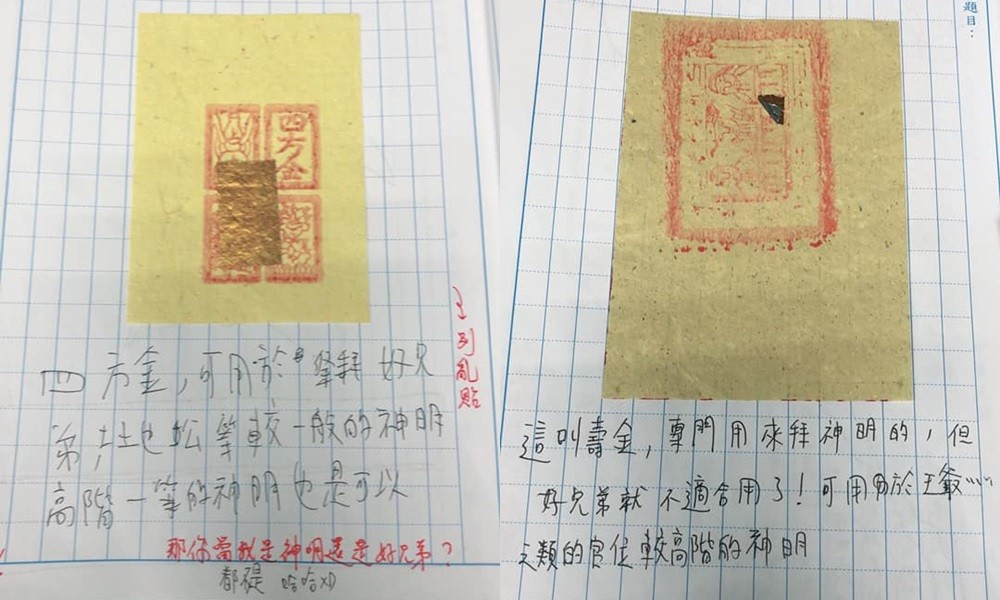 四方金
四方金,可用於祭拜好兄
弟,土地公等較一般的神明
高階一等的神明也是可以
亂貼
那你當我是神明還是好兄弟?
都 哈哈XD
題目:
這叫壽金,專門用來拜神明的,但
好兄弟就不適合用了!可用於王爺……
之類的官位較高階的神明